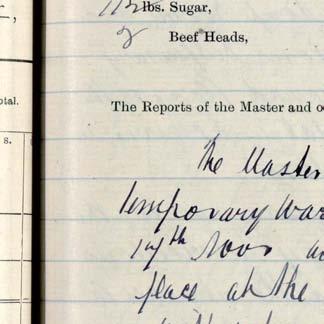 lbs. Sugar,
2 Beef Heads,
otal.
The Reports of the Master and o
s.
The Master
temporary War
17th
place at the